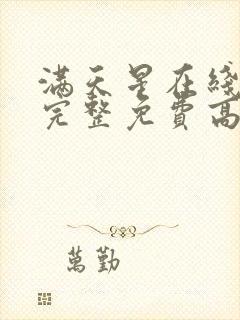 满天星在线
完整免費高
萬勤